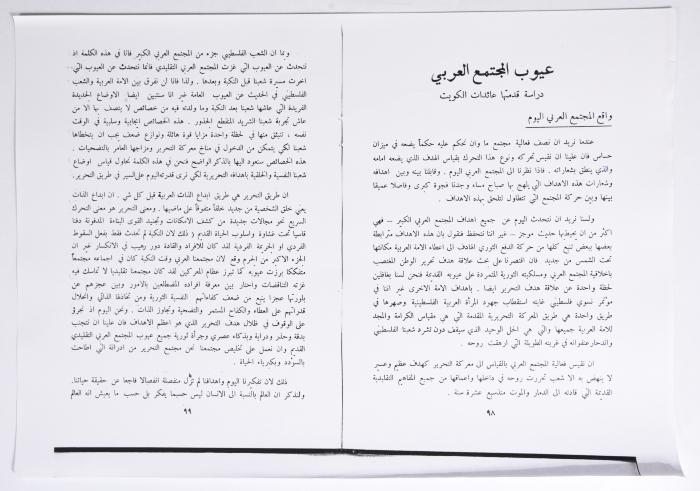 عيوب المجتمع العربي
دراسة قدمتها عائدات الكويت
واقع المجتمع العربي اليوم
عندما نريد ان نصف فعالية مجتمع ما وان نحكم عليه حكماً يضعه في ميزان
حساس فان علينا ان نقيس تحركه ونوع هذا التحرك بقياس الهدف الذي يضعه امامه
والذي ينطق بشعاراته . فاذا نظرنا الى المجتمع العربي اليوم . وقابلنا بينه وبين اهدافه
وشعارات هذه الاهداف التي يلهج بها صباح مساء وجدنا فجوة كبرى وفاصلا عميقا
بينها وبين حركة المجتمع التي تتطاول لتلحق بهذه الاهداف .
ولسنا نريد ان نتحدث اليوم عن جميع اهداف المجتمع العربي الكبير – فهي
اكثر من ان يحيطها حديث موجز – غير اننا نتحفظ فنقول بان هذه الاهداف مترابطة
بعضها ببعض تنبع كلها من حركة الدفع الثوري الهادف الى اعطاء الامة العربية مكانتها
تحت الشمس من جديد . فان اقتصرنا على بحث علاقة هدف تحرير الوطن المغتصب
باخلاقية المجتمع العربي ومسلكيته الثورية المتمردة على عيوبه القديمة فنحن لسنا بغافلين
لحظة واحدة عن علاقة هدف التحرير ايضا . باهداف الامة الاخرى غير اننا في
مؤتمر نسوي فلسطيني غايته استقطاب جهود المرأة العربية الفلسطينية وصهرها في
طريق واحدة هي طريق المعركة التحريرية المقدمة التي هي مقياس الكرامة والمجد
للامة العربية جميعها والتي هي الحل الوحيد الذي سيقف دون تشرد شعبنا الفلسطيني
واندحار عنفوانه في غربته الطويلة التي ارهقت روحه .
ان نقيس فعالية المجتمع العربي بالقياس الى معركة التحرير كهدف عظيم وعسير
لا ينهض به الا شعب تحررت روحه في داخلها واعماقها من جميع المفاهيم التقليدية
القديمة التي قادته الى الدمار والموت منذ سبع عشرة سنة .
٩٨
وبما ان الشعب الفلسطيني جزء من المجتمع العربي الكبير فاننا في هذه الكلمة اذ
نتحدث عن العيوب التي غزت المجتمع العربي التقليدي فانما نتحدث عن العيوب التي
اخرت مسيرة شعبنا قبل النكبة وبعدها . ولذا فاننا لن نفرق بين الامة العربية والشعب
الفلسطيني في الحديث عن العيوب العامة غير اننا سنتبين ايضا الاوضاع الجديدة
التي عاشها شعبنا بعد النكبة وما ولدته فيه من خصائص لا يتصف بها الا من
عاش تجربة شعبنا الشريد المنقطع الجذور . هذه الخصائص ايجابية وسلبية في الوقت
نفسه ، تنبثق منها في لحظة واحدة مزايا قوة هائلة ونوازع ضعف يجب ان يتخطاها
شعبنا لكي يتمكن من الدخول في مناخ معركة التحرير ومزاجها العامر بالتضحيات .
هذه الخصائص سنعود اليها بالذكر الواضح فنحن في هذه الكلمة نحاول قياس اوضاع
شعبنا النفسية والخلقية باهدافه التحريرية لكي نرى قدرته اليوم على السير في طريق التحرير.
ان طريق التحرير هي طريق ابداع الذات العربية قبل كل شي . ان ابداع الذات
يعني خلق الشخصية من جديد خلقاً متفوقاً على ماضيها . ومعنى التحرير هو معنى التحرك
السريع نحو مجالات جديدة من كشف الامكانات وتجنيد القوى البناءة المدفونة دفنا
قاسيا تحت غشاوة واسلوب الحياة القديم ( ذلك لان النكبة لم تحدث فقط بفعل السقوط
الفردي او الجريمة الفردية لقد كان للافراد والقادة دور رهيب في الانكسار غير ان
الجزء الاكبر من الجرم وقع لان مجتمعنا العربي وقت النكبة كان في اجماعه مجتمعاً
متفككا برزت عيوبه كما تبرز عظام المعركين لقد كان مجتمعنا تقليديا لا تماسك فيه
غزته التناقضات واحتار بين معرفة افراده المضطلعين بالامور وبين عجزهم عن
بلورتها عجزا ينبع من ضعف كفاءاتهم النفسية الثورية ومن تخاذلها الذاتي وانحلال
قدراتهم على العطاء والكفاح المستمر والتضحية وتجاوز الذات . ونحن اليوم اذ نجرؤ
على الوقوف في ظلال هدف التحرير الذي هو اعظم الاهداف فان علينا ان نتجنب
بدقة وحذر ودراية وبذكاء عصري وجرأة ثورية جميع عيوب المجتمع العربي التقليدي
القديم وان نعمل على تخليص مجتمعنا نحن مجتمع التحرير من ادرانه التي اطاحت
بالسؤدد وبكبرياء الحياة .
ذلك لان تفكيرنا اليوم واهدافنا لم تزل منفصلة انفصالا فاجعا عن حقيقة حياتنا.
ولنذكر ان العالم بالنسبة الى الانسان ليس حسبما يفكر بل حسب ما يعيش انه العالم
٩٩